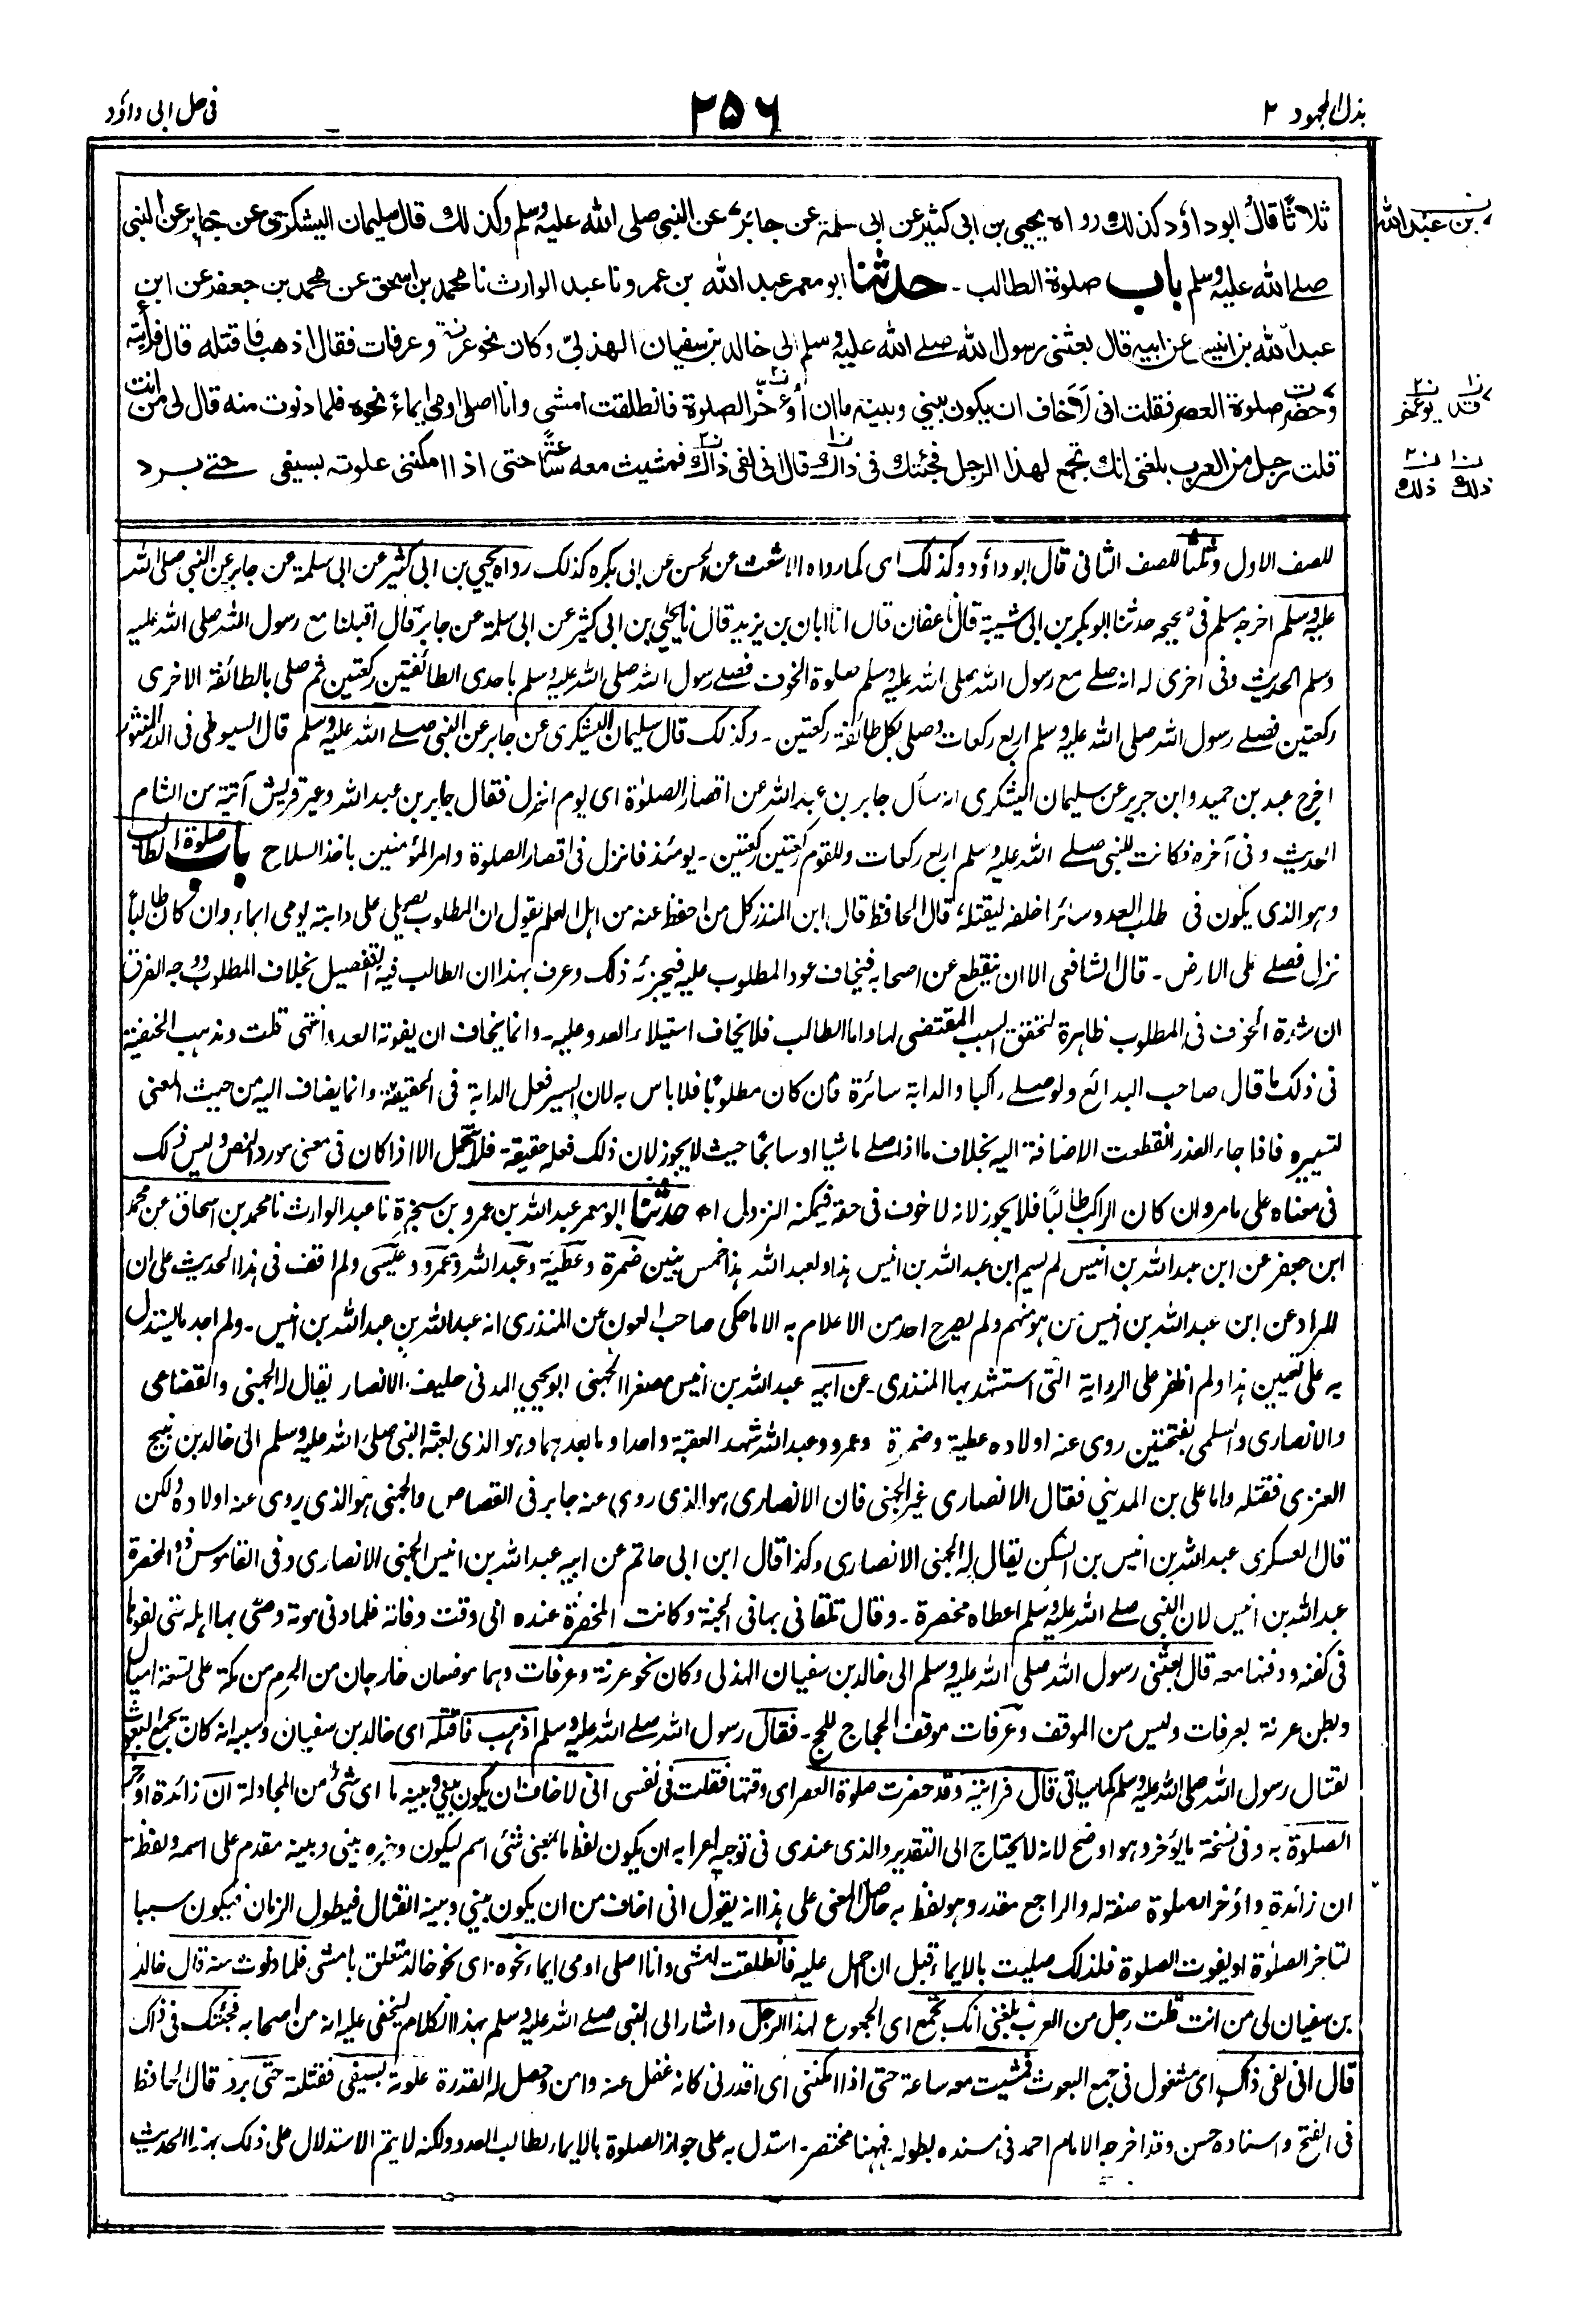 بذل المجهود ٢
٢٥٦
فی حل ابی داؤد
ثلاثًا قال ابو داؤد كذلك رواه يحيى بن ابی كثير عن ابی سلمة عن جابر عن النبی صلی الله عليه وسلم وكذلك قال سليمان اليشكری عن جابر عن النبی
بن عبد الله
صلے الله عليه وسلم باب صلوة الطالب ـ حدثنا ابو معمر عبد الله بن عمرو نا عبد الوارث نا محمد بن اسحق عن محمد بن جعفر عن ابن
عبد الله بن انيس عن ابيه قال بعثنی رسول الله صلے الله عليه وسلم الی خالد بن سفيان الهذلی وكان نحو عرنة وعرفات فقال اذهب فاقتله قال فرأيته
وحضرت صلوة العصر فقلت انی لاخاف ان يكون بينی وبينه ما ان اؤخر الصلوة فانطلقت امشی وانا اصلی اومی ايماء نحوه فلما دنوت منه قال لی من انت
ن١ قد ن٢ يؤخر
قلت رجل من العرب بلغنی انك تجمع لهذا الرجل فجئتك فی ذاك قال انی لفی ذاك فمشيت معه ساعة حتی اذا امكننی علوته بسيفی حتے برد
ن١ ذلك ن٢ ذلك
للصف الاول وثلثا للصف الثانی قال ابو داؤد وكذلك ای كما رواه الاشعث عن الحسن عن ابی بكره كذلك رواه يحيی بن ابی كثير عن ابی سلمة عن جابر عن النبی صلی الله
عليه وسلم اخرجه مسلم فی صحيحه حدثنا ابو بكر بن ابی شيبة قال نا عفان قال انا ابان بن يزيد قال نا يحيی بن ابی كثير عن ابی سلمة عن جابر قال اقبلنا مع رسول الله صلی الله عليه
وسلم الحديث وفی اخری له انه صلے مع رسول الله صلی الله عليه وسلم صلوة الخوف فصلے رسول الله صلی الله عليه وسلم باحدی الطائفتين ركعتين ثم صلی بالطائفة الاخری
ركعتين فصلے رسول الله صلی الله عليه وسلم اربع ركعات وصلی بكل طائفة ركعتين ـ وكذلك قال سليمان اليشكری عن جابر عن النبی صلے الله عليه وسلم قال السيوطی فی الدر المنثور
اخرج عبد بن حميد وابن جرير عن سليمان اليشكری انه سأل جابر بن عبد الله عن اقصار الصلوٰة ای يوم انزل فقال جابر بن عبد الله وعير قريش آتية من الشام
الحديث وفی آخره فكانت للنبی صلے الله عليه وسلم اربع ركعات وللقوم ركعتين ركعتين ـ يومئذ فانزل فی اقصار الصلوة وامر المؤمنين باخذ السلاح باب صلوة الطالب
وهو الذی يكون فی طلب العدو سائرا خلفه ليقتله، قال الحافظ قال ابن المنذر كل من احفظ عنه من اهل العلم يقول ان المطلوب يصلی علی دابته يومی ايماء وان كان طالبا
نزل فصلے علی الارض ـ قال الشافعی الا ان ينقطع عن اصحابه فيخاف عود المطلوب عليه فيجزئه ذلك وعرف بهذا ان الطالب فيه التفصيل بخلاف المطلوب ووجه الفرق
ان شدة الخوف فی المطلوب ظاهرة لتحقق السبب المقتضی لها واما الطالب فلا يخاف استيلاء العدو عليه ـ وانما يخاف ان يفوته العدو انتهی قلت ومذهب الحنفية
فی ذلك ما قال صاحب البدائع ولو صلے راكبا والدابة سائرة فان كان مطلوبًا فلا باس به لان السير فعل الدابة فی الحقيقة وانما يضاف اليه من حيث المعنی
لتسييره فاذا جاء العذر انقطعت الاضافة اليه بخلاف ما اذا صلے ماشيا او سابحًا حيث لا يجوز لان ذلك فعله حقيقة فلا يتحمل الا اذا كان فی معنی مورد النص وليس ذلك
فی معناه علی ما مر وان كان الراكب طالبًا فلا يجوز لانه لا خوف فی حقه فيمكنه النزول اه حدثنا ابو معمر عبد الله بن عمرو بن سخبرة نا عبد الوارث نا محمد بن اسحاق عن محمد
ابن جعفر عن ابن عبد الله بن انيس لم يسم ابن عبد الله بن انيس هذا ولعبد الله هذا خمس بنين ضمرة وعطية وعبد الله وعمرو وعيسی ولم اقف فی هذا الحديث علی ان
المراد عن ابن عبد الله بن انيس من هو منهم ولم يصرح احد من الاعلام به الا ما حكی صاحب العون عن المنذری انه عبد الله بن عبد الله بن انيس ـ ولم اجد ما يستدل
به علی تعيين هذا ولم اظفر علی الرواية التی استشهد بها المنذری ـ عن ابيه عبد الله بن انيس مصغرا الجهنی ابو يحيی المدنی حليف الانصار يقال له الجهنی والقضاعی
والانصاری والسلمی بفتحتين روی عنه اولاده عطية وضمرة وعمرو وعبد الله شهد العقبة واحدا وما بعدهما وهو الذی بعثه النبی صلی الله عليه وسلم الی خالد بن نبيح
العنزی فقتله واما علی بن المدينی فقال الانصاری غير الجهنی فان الانصاری هو الذی روی عنه جابر فی القصاص والجهنی هو الذی يروی عنه اولاده ولكن
قال العسكری عبد الله بن انيس بن السكن يقال له الجهنی الانصاری وكذا قال ابن ابی حاتم عن ابيه عبد الله بن انيس الجهنی الانصاری وفی القاموس ذو المخصرة
عبد الله بن انيس لان النبی صلے الله عليه وسلم اعطاه مخصرة ـ وقال تلقانی بها فی الجنة وكانت المخصرة عنده الی وقت وفاته فلما دنی موته وصی بها اهله حتی لفوها
فی كفنه ودفنها معه قال بعثنی رسول الله صلی الله عليه وسلم الی خالد بن سفيان الهذلی وكان نحو عرنة وعرفات وهما موضعان خارجان من الحرم من مكة علی تسعة اميال
وبطن عرنة بعرفات وليس من الموقف وعرفات موقف الحجاج للحج ـ فقال رسول الله صلے الله عليه وسلم اذهب فاقتله ای خالد بن سفيان وسببه انه كان يجمع البعوث
لقتال رسول الله صلی الله عليه وسلم كما سياتی قال فرايته وقد حضرت صلوة العصر ای وقتها فقلت فی نفسی انی لا خاف ان يكون بينی وبينه ما ای شئ من المجادلة ان زائدة اؤخر
الصلوة به وفی نسخة ما يؤخر وهو اوضح لانه لا يحتاج الی التقدير والذی عندی فی توجيه اعرابه ان يكون لفظ ما بمعنی شئ اسم ليكون وخبره بينی وبينه مقدم علی اسمه ولفظة
ان زائدة واؤخر الصلوة صفة له والراجع مقدر وهو لفظ به حاصل المعنی علی هذا انه يقول انی اخاف من ان يكون بينی وبينه القتال فيطول الزمان فيكون سببا
لتاخر الصلوٰة او ليفوت الصلوة فلذلك صليت بالايماء قبل ان احمل عليه فانطلقت امشی وانا اصلی اومی ايماء نحوه ای نحو خالد متعلق بامشی فلما دنوت منه قال خالد
بن سفيان لی من انت قلت رجل من العرب بلغنی انك تجمع ای الجموع لهذا الرجل واشار الی النبی صلے الله عليه وسلم بهذا الكلام ليخفی عليه انه من اصحابه فجئتك فی ذاك
قال انی لفی ذاك ای مشغول فی جمع البعوث فمشيت معه ساعة حتی اذا امكننی ای اقدرنی كانه غفل عنه وامن وحصل له القدرة علوته بسيفی فقتلته حتی برد قال الحافظ
فی الفتح واسناده حسن وقد اخرجه الامام احمد فی مسنده بطوله فههنا مختصر ـ استدل به علی جواز الصلوة بالايماء لطالب العدو ولكنه لا يتم الاستدلال علی ذلك بهذا الحديث